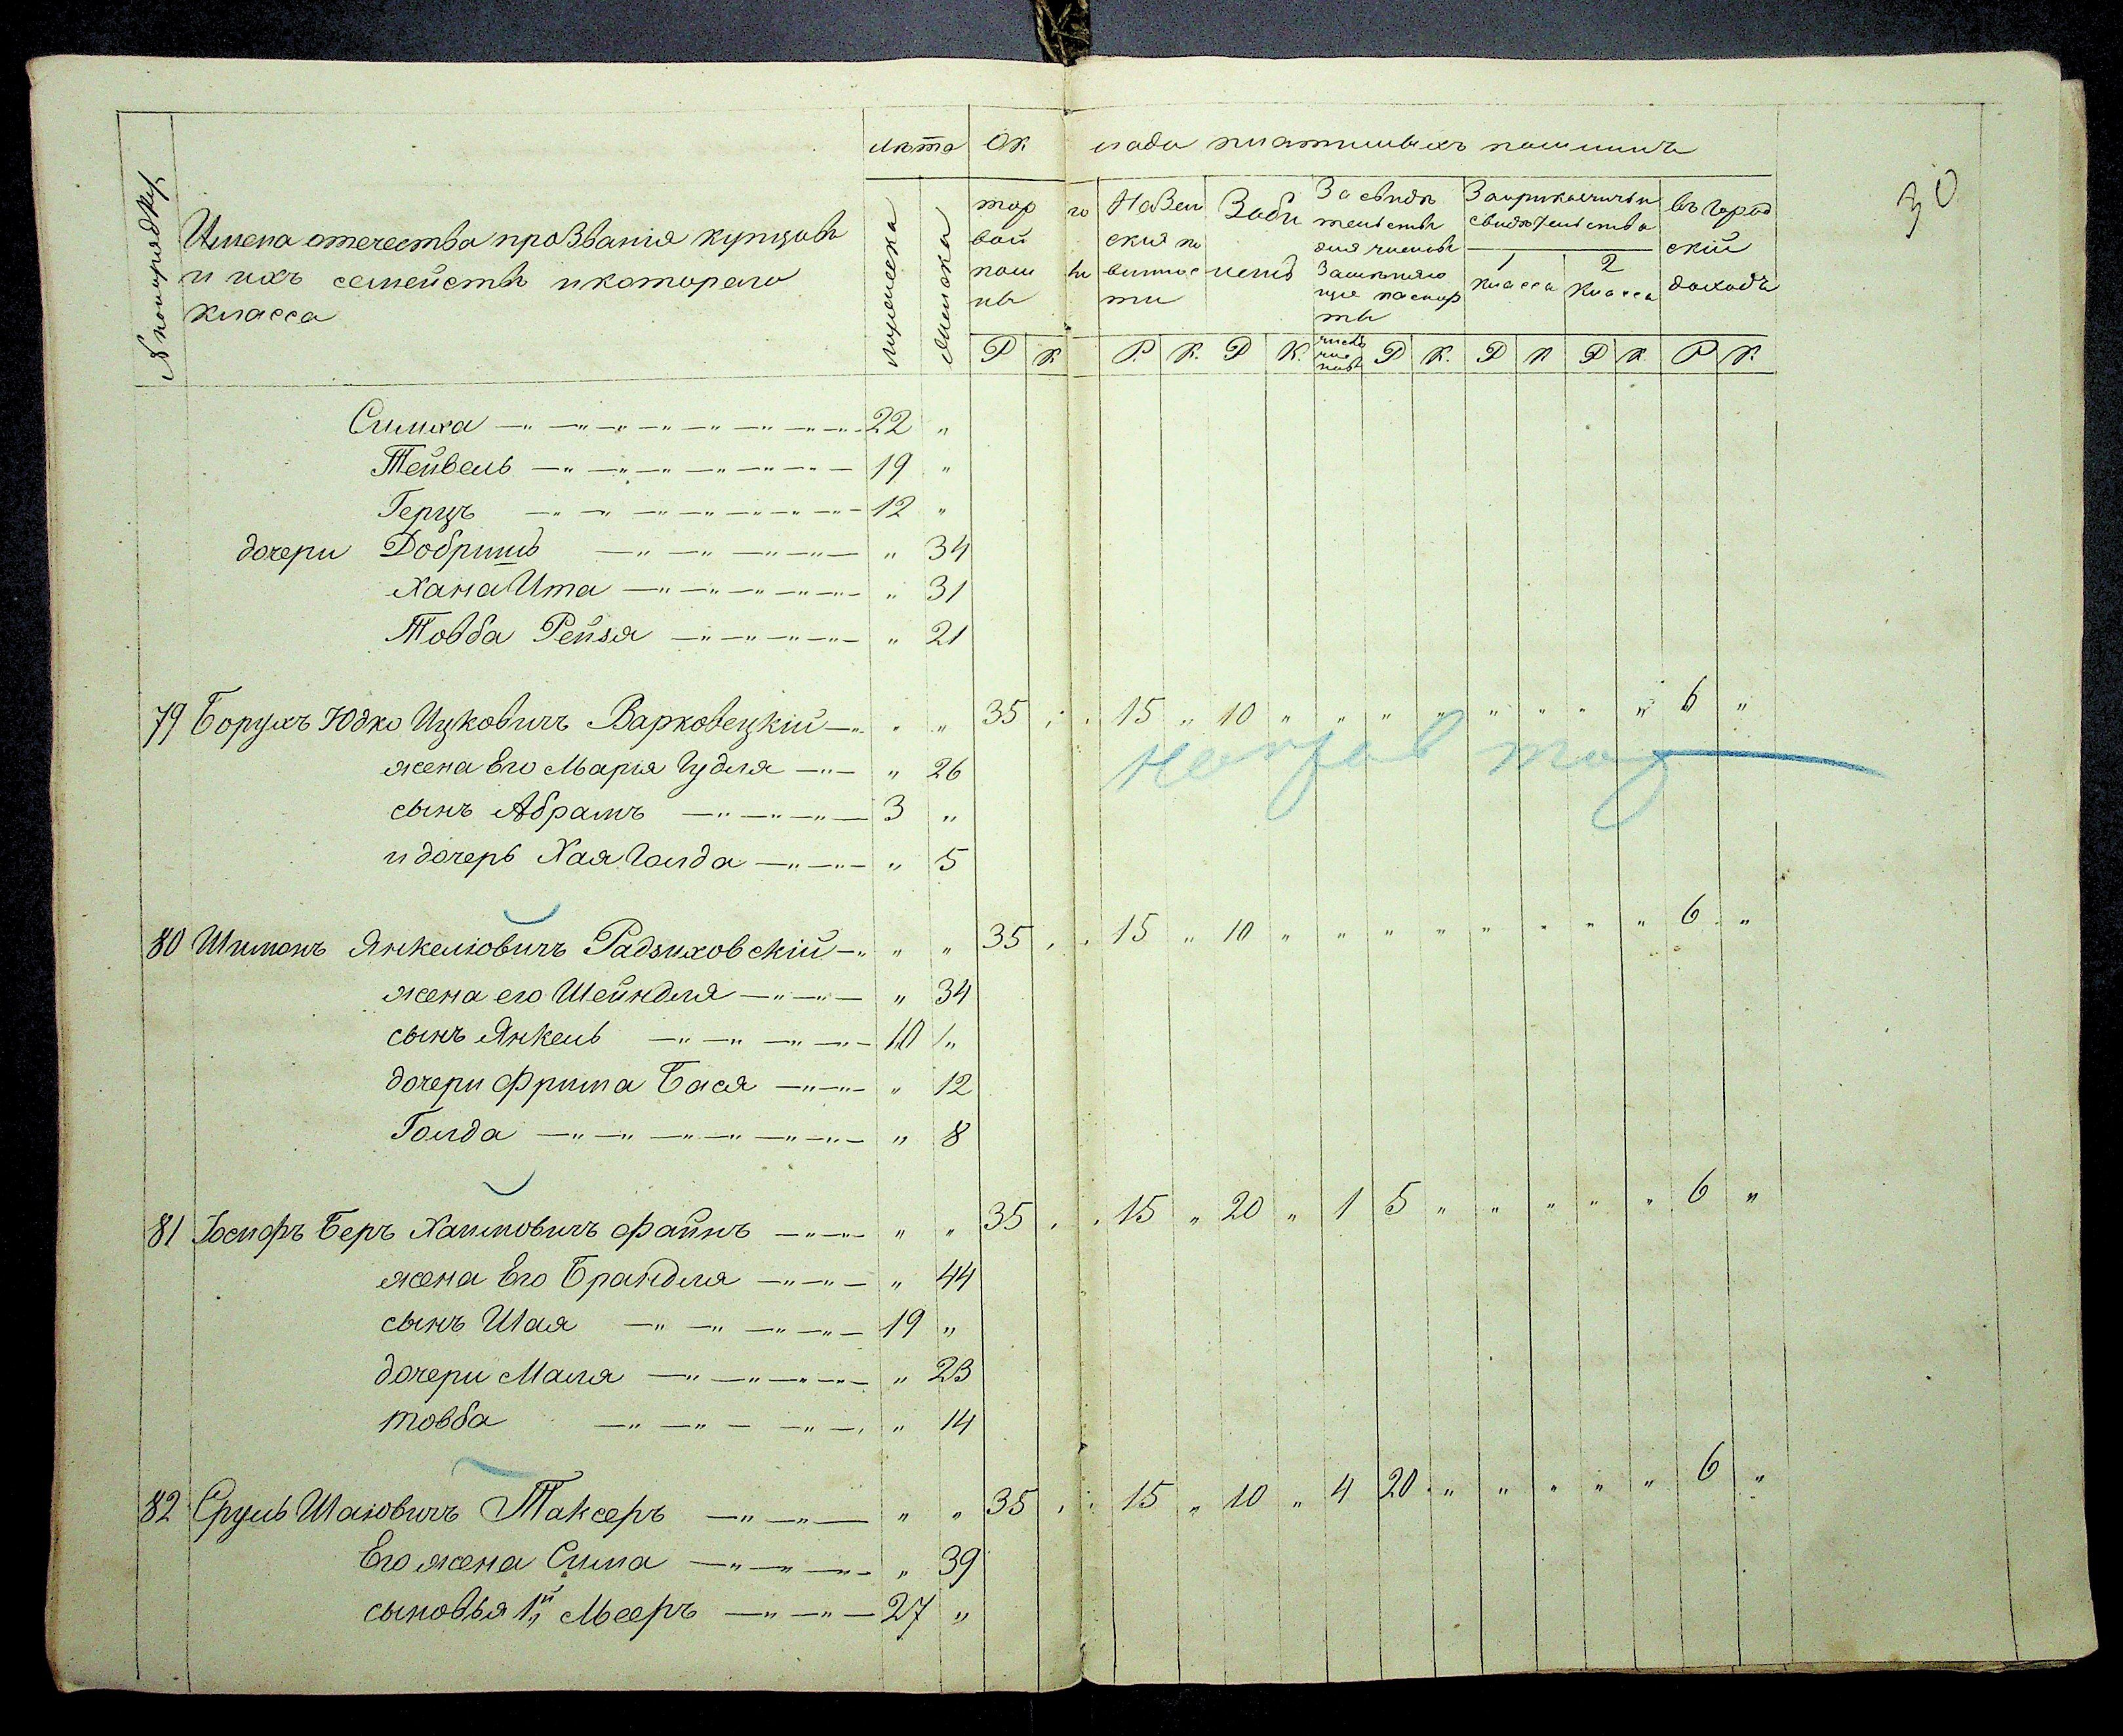 30
№ по порядку
Имена отечества прозванiя купцовъ
и ихъ семействъ и котораго
класса
лѣта
мужеска
женска
Ок
лады платимыхъ пошлинъ
тор го
вой
пош ли
ны
На Зем
скiя по
виннос
ти
За би
летъ
За свидѣ
тельства
для членовъ
Замѣняю
щiе паспор
ты
За прикащичьи
свидѣтельства
1
класса
2
класса
въ Город
скiй
доходъ
Р К Р. К. Р К. число членовъ Р К. Р К Р К Р К.
Симха —„—„—„—„— 22 „
Тейвель —„—„—„—„— 19 „
Герцъ —„—„—„—„— 12 „
дочери Добришъ —„—„—„— „ 34
Хана Ита —„—„—„— „ 31
Товба Рейзя —„—„—„— „ 21
79 Борухъ Юдко Ицковичъ Варковецкiй —„ „ „ 35 „ 15 „ 10 „ „ „ „ „ „ „ „ 6 „
жена Его Марья Гудля —„— „ 26
сынъ Абрамъ —„—„—„— 3 „
и дочерь Хая Голда —„—„— „ 5
80 Шимонъ Янкелiовичъ Радзиховскiй —„ „ „ 35 „ 15 „ 10 „ „ „ „ „ „ „ „ 6 „
жена его Шейндля —„—„— „ 34
сынъ Янкель —„—„—„— 10 „
дочери Фрима Бася —„—„— „ 12
Голда —„—„—„—„— „ 8
81 Iосифъ Беръ Хаимовичъ Файнъ —„—„ „ „ 35 „ 15 „ 20 „ 1 5 „ „ „ „ „ 6 „
жена Его Брандля —„—„— „ 44
сынъ Шая —„—„—„— 19 „
дочери Маля —„—„—„— „ 23
товба —„—„—„— „ 14
82 Сруль Шаiовичъ Таксеръ —„—„— „ „ 35 „ 15 „ 10 „ 4 20 „ „ „ „ „ 6 „
Его жена Сима —„—„—„ „ 39
сыновья 1й Мееръ —„—„— 27 „